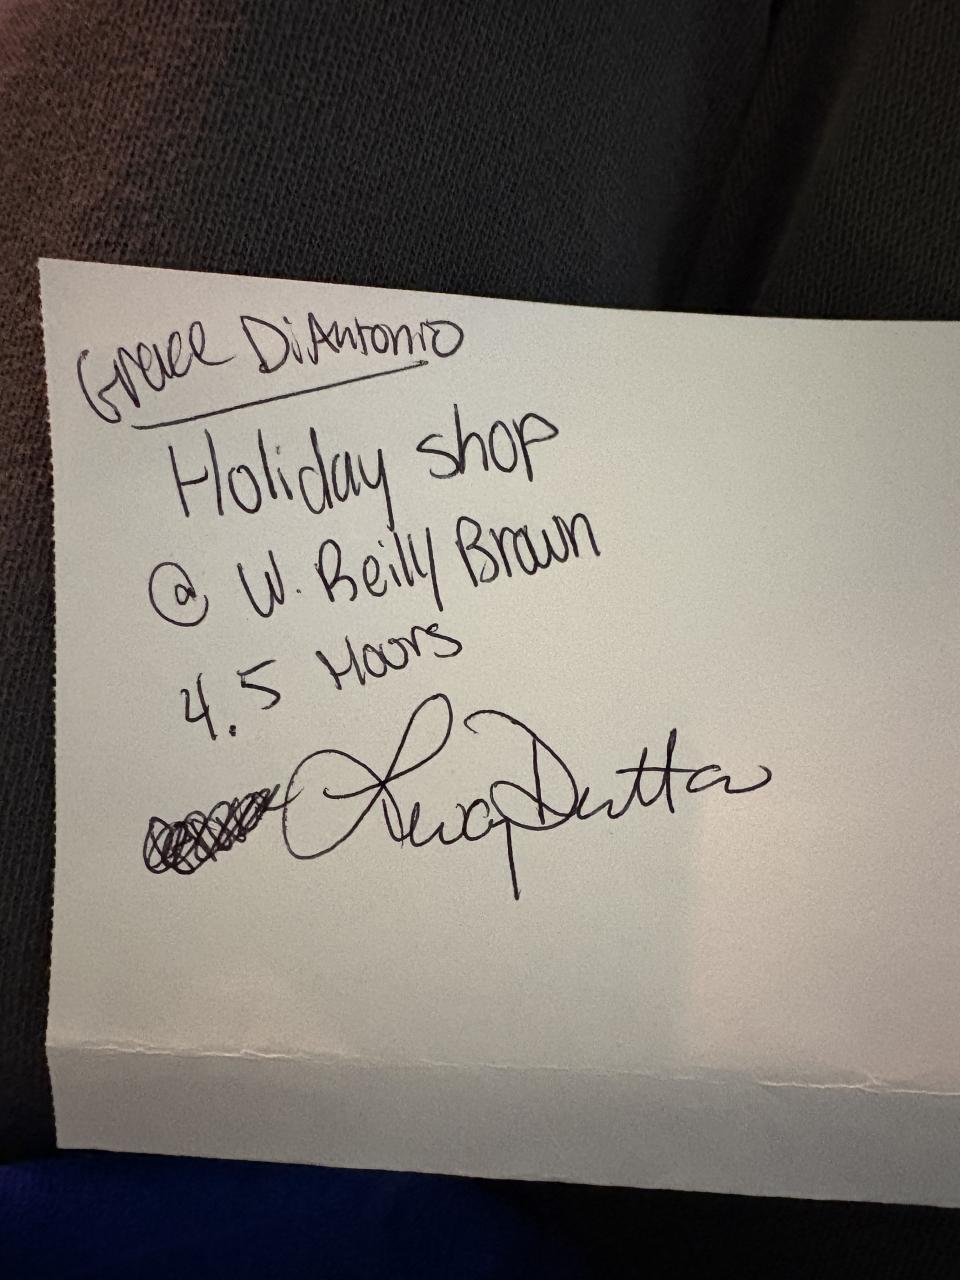 Grace DiAntonio
Holiday shop
@ W. Reily Brown
4.5 Hours
Dutta